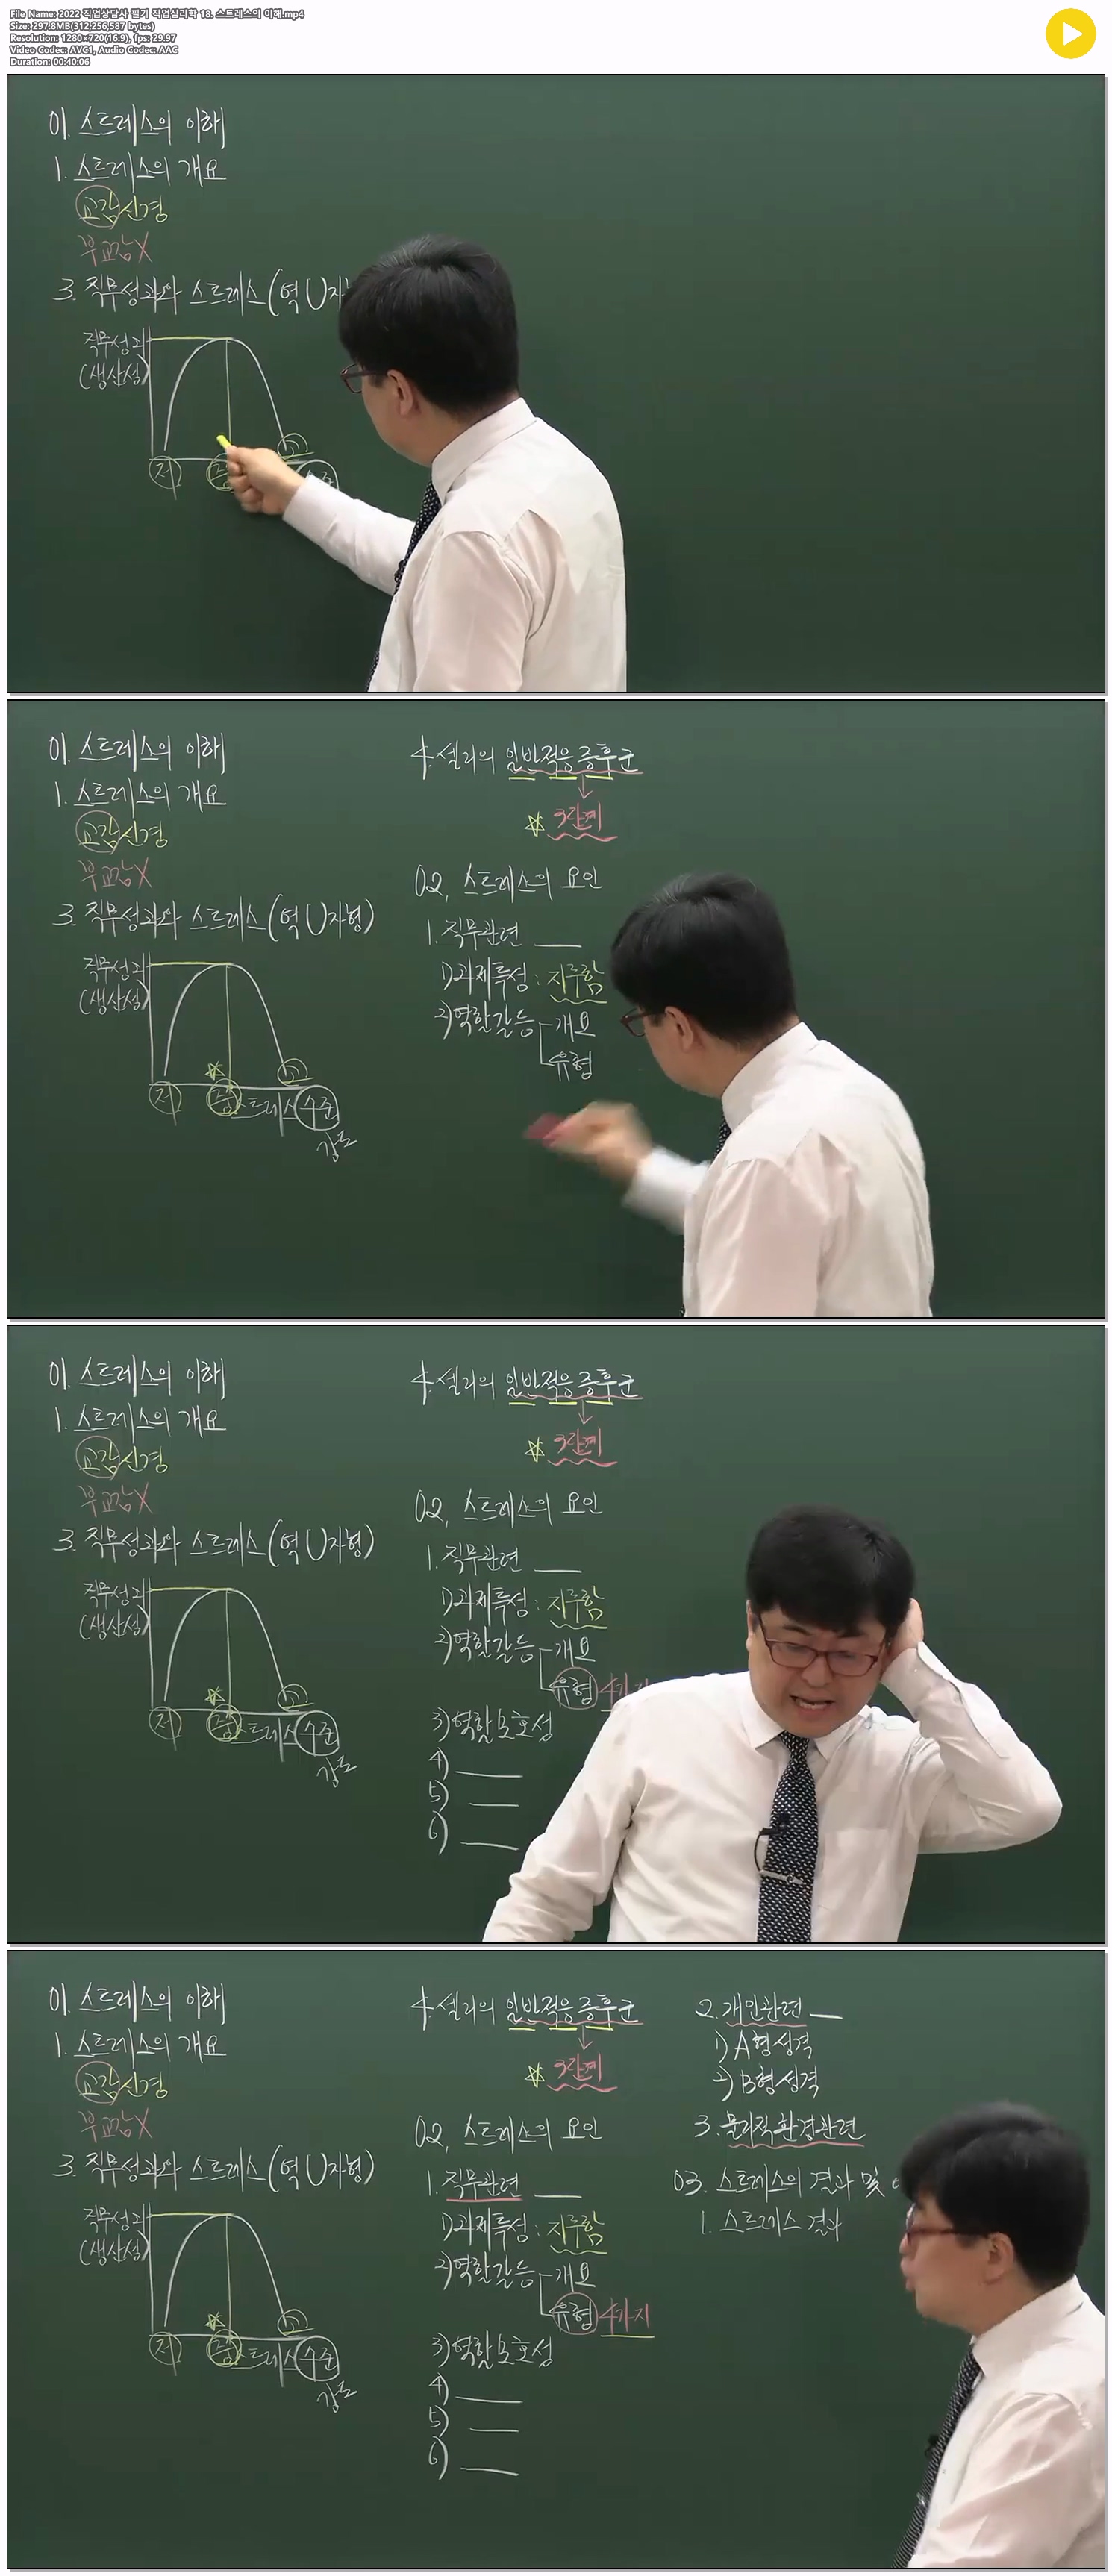 File Name: 2022 직업상담사 필기 직업심리학 18. 스트레스의 이해.mp4
Size: 297.8MB(312,256,587 bytes)
Resolution: 1280×720(16:9), fps: 29.97
Video Codec: AVC1, Audio Codec: AAC
Duration: 00:40:06
01. 스트레스의 이해
1. 스트레스의 개요
교감신경
부교감X
3. 직무성과와 스트레스(역U자
직무성과
(생산성)
저 중 고
수준
01. 스트레스의 이해
1. 스트레스의 개요
교감신경
부교감X
3. 직무성과와 스트레스(역U자형)
직무성과
(생산성)
저 중 고
스트레스수준
강도
4. 셀리의 일반적응증후군
3단계
02. 스트레스의 요인
1. 직무관련
1)과제특성 : 지루함
2)역할갈등 개요
유형
01. 스트레스의 이해
1. 스트레스의 개요
교감신경
부교감X
3. 직무성과와 스트레스(역U자형)
직무성과
(생산성)
저 중 고
스트레스수준
강도
4. 셀리의 일반적응증후군
3단계
02. 스트레스의 요인
1. 직무관련
1)과제특성 : 지루함
2)역할갈등 개요
유형 4가지
3)역할모호성
4)
5)
6)
01. 스트레스의 이해
1. 스트레스의 개요
교감신경
부교감X
3. 직무성과와 스트레스(역U자형)
직무성과
(생산성)
저 중 고
스트레스수준
강도
4. 셀리의 일반적응증후군
3단계
02. 스트레스의 요인
1. 직무관련
1)과제특성 : 지루함
2)역할갈등 개요
유형 4가지
3)역할모호성
4)
5)
6)
2. 개인관련
1) A형성격
2) B형성격
3. 물리적환경관련
03. 스트레스의 결과 및
1. 스트레스 결과